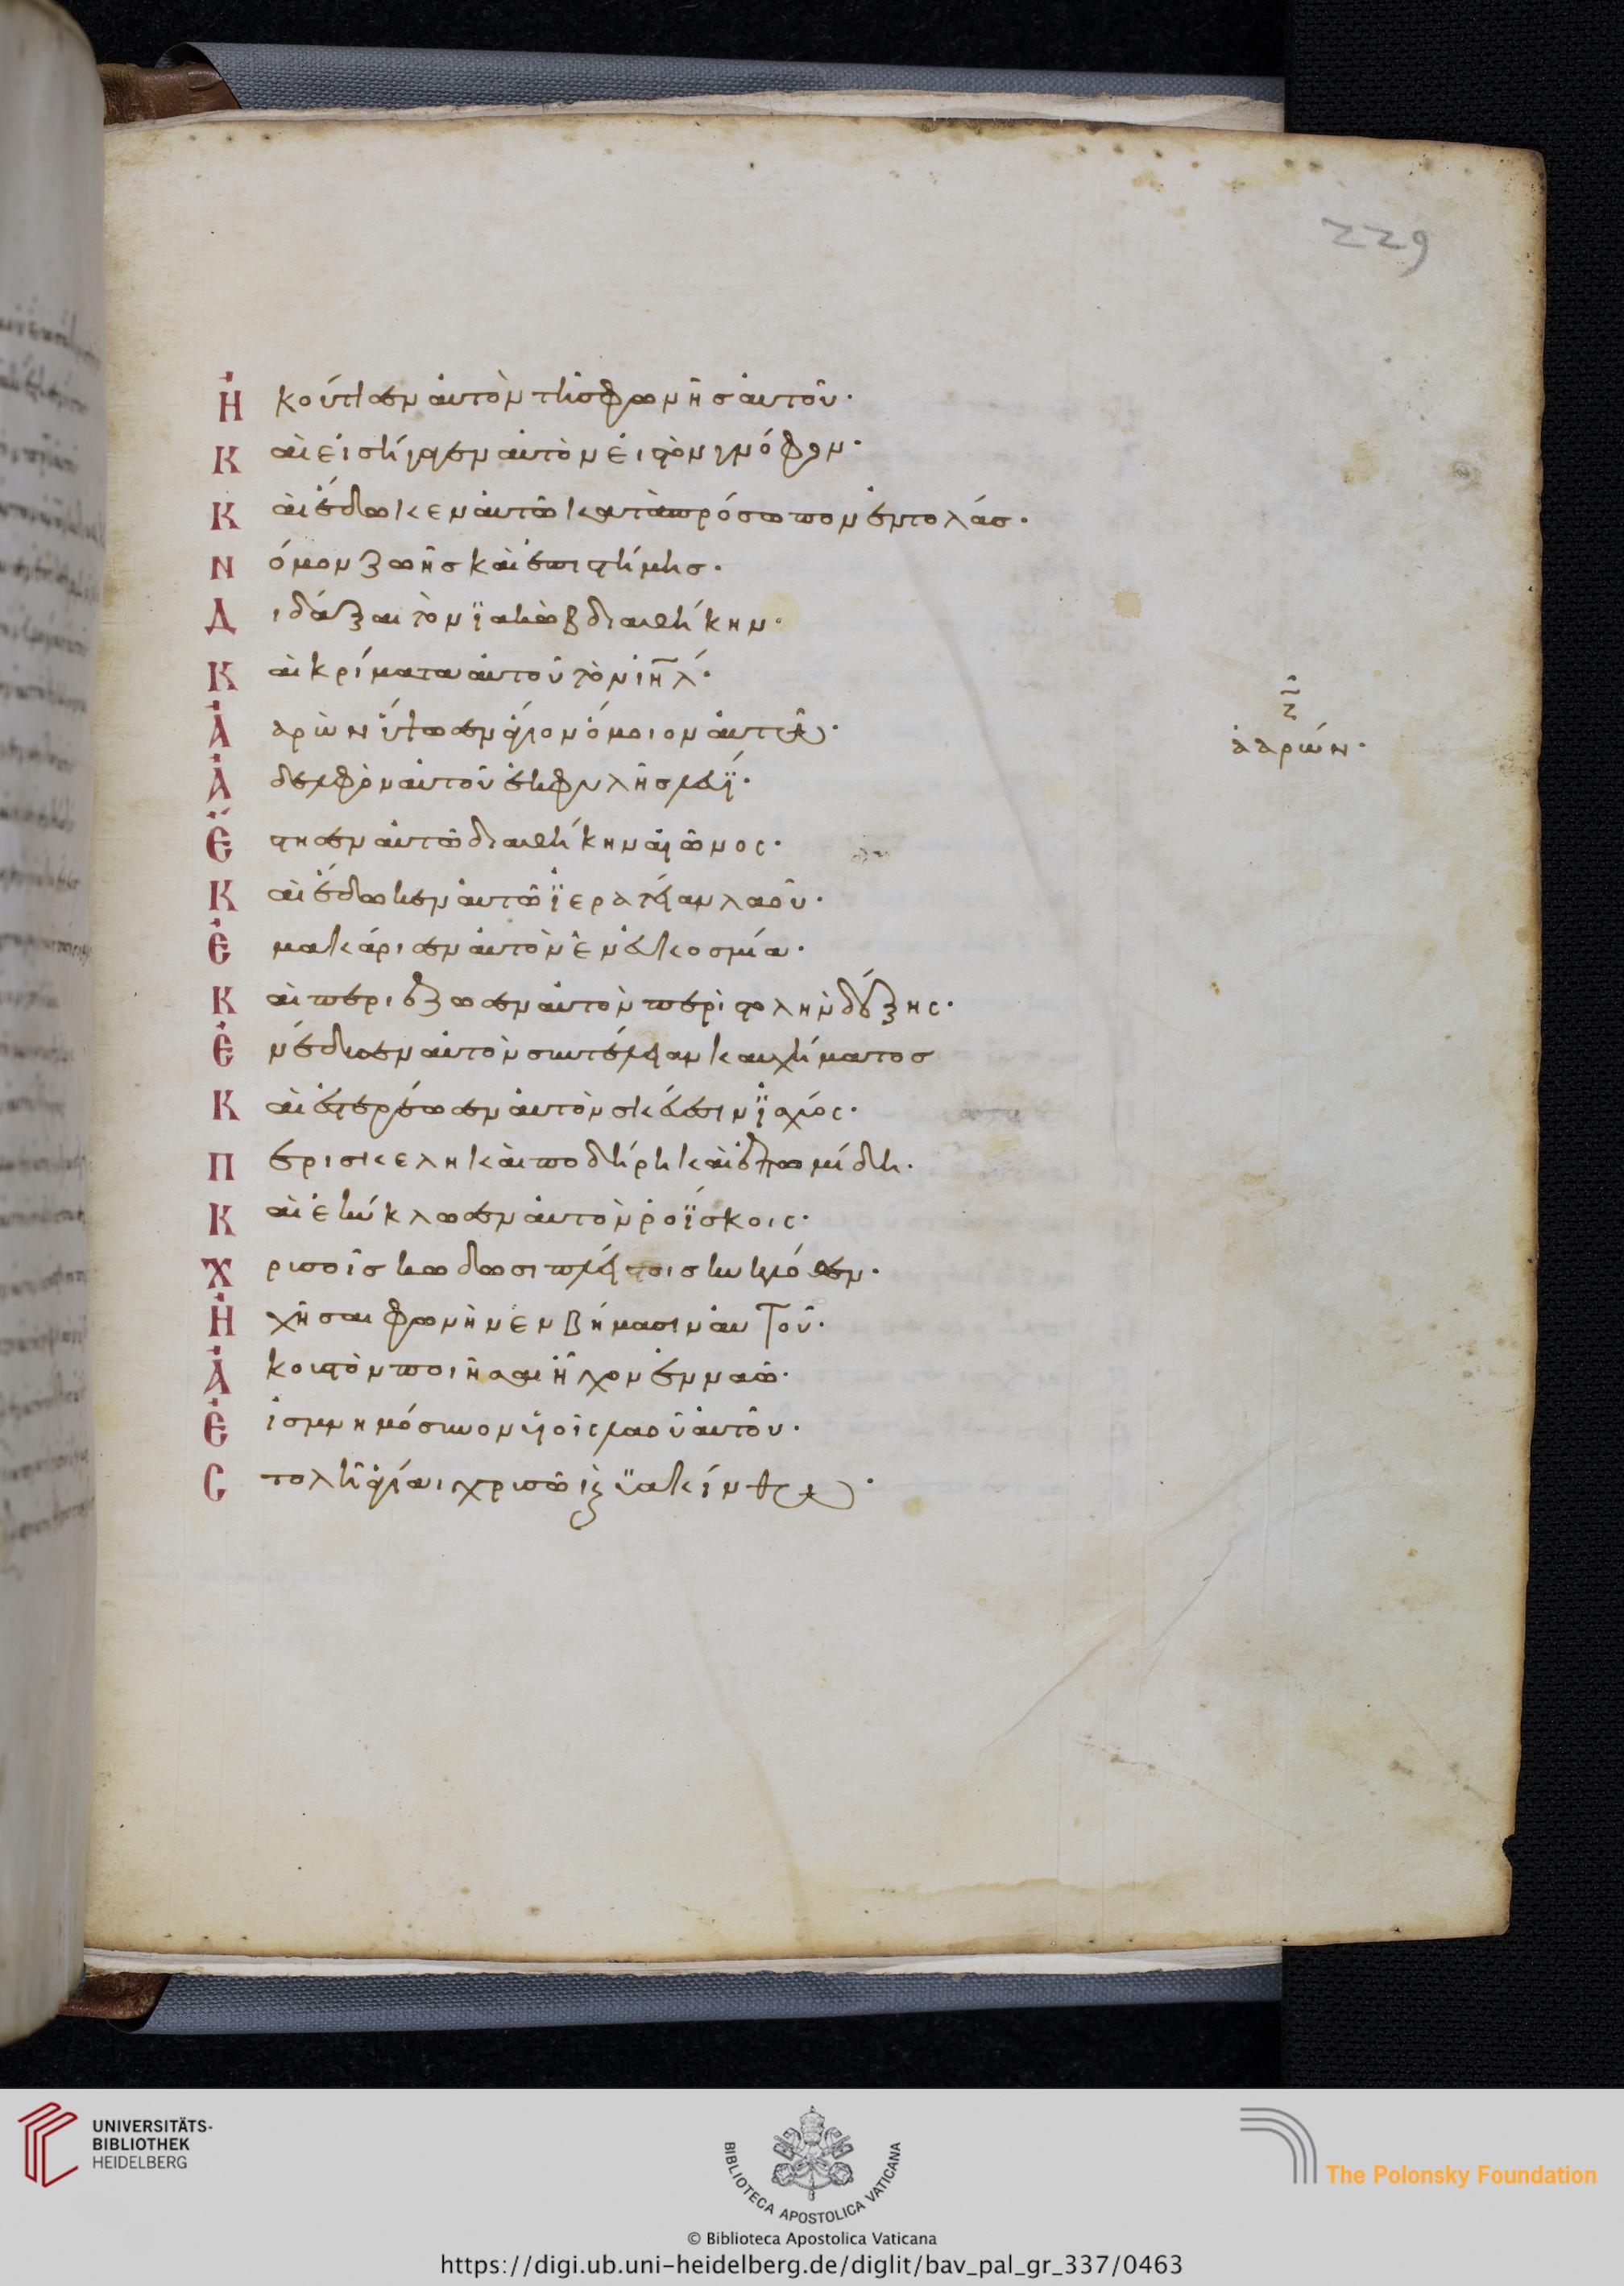 229
Ἠκούτισεν αὐτὸν τῆς φωνῆς αὐτοῦ·
Καὶ εἰσήγαγεν αὐτὸν εἰς τὸν γνόφον·
Καὶ ἔδωκεν αὐτῶ κατὰ πρόσωπον ἐντολάς·
Νόμον ζωῆς καὶ ἐπιστήμης·
Διδάξαι τὸν ϊακὼβ διαθήκην·
Καὶ κρίματα αὐτοῦ τὸν ιηλ·
Ἀαρὼν ὕψωσεν ἅγιον ὅμοιον αὐτῶ·
ζ
ἀαρών·
Ἀδελφὸν αὐτοῦ ἐκ φυλῆς λευΐ·
Ἔστησεν αὐτῶ διαθήκην αἰῶνος·
Καὶ ἔδωκεν αὐτῶ ϊερατείαν λαοῦ·
Ἐμακάρισεν αὐτὸν ἐν εὐκοσμία·
Καὶ περιέζωσεν αὐτὸν περιστολὴν δόξης·
Ἐνέδυσεν αὐτὸν συντέλειαν καυχήματος
Καὶ ἐστερέωσεν αὐτὸν σκεύεσιν ϊσχύος·
Περισκελη καὶ ποδήρη καὶ ἐπωμίδη·
Καὶ ἐκύκλωσεν αὐτὸν ροΐσκοις·
Χρυσοῖς κώδωσι πλείστοις κυκλόθεν·
Ἠχῆσαι φωνὴν ἐν βήμασιν αὐτοῦ·
Ἀκουστὸν ποιῆσαι ἦχον ἐν ναῶ·
Εἰς μνημόσυνον υἱοῖς λαοῦ αὐτοῦ·
Στολῆ ἁγίαι χρυσῶ καὶ ϋακίνθω·
UNIVERSITÄTS-
BIBLIOTHEK
HEIDELBERG
BIBLIOTECA APOSTOLICA VATICANA
The Polonsky Foundation
© Biblioteca Apostolica Vaticana
https://digi.ub.uni-heidelberg.de/diglit/bav_pal_gr_337/0463